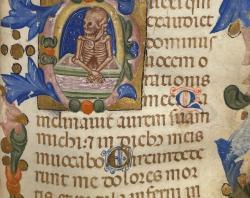 exaudiet
dominus
uocem o
rationis
mee Q
inclinauit aurem suam
michi: ⁊ in diebus meis
inuocabo Circumdede
runt me dolores mor
tis et inferni in